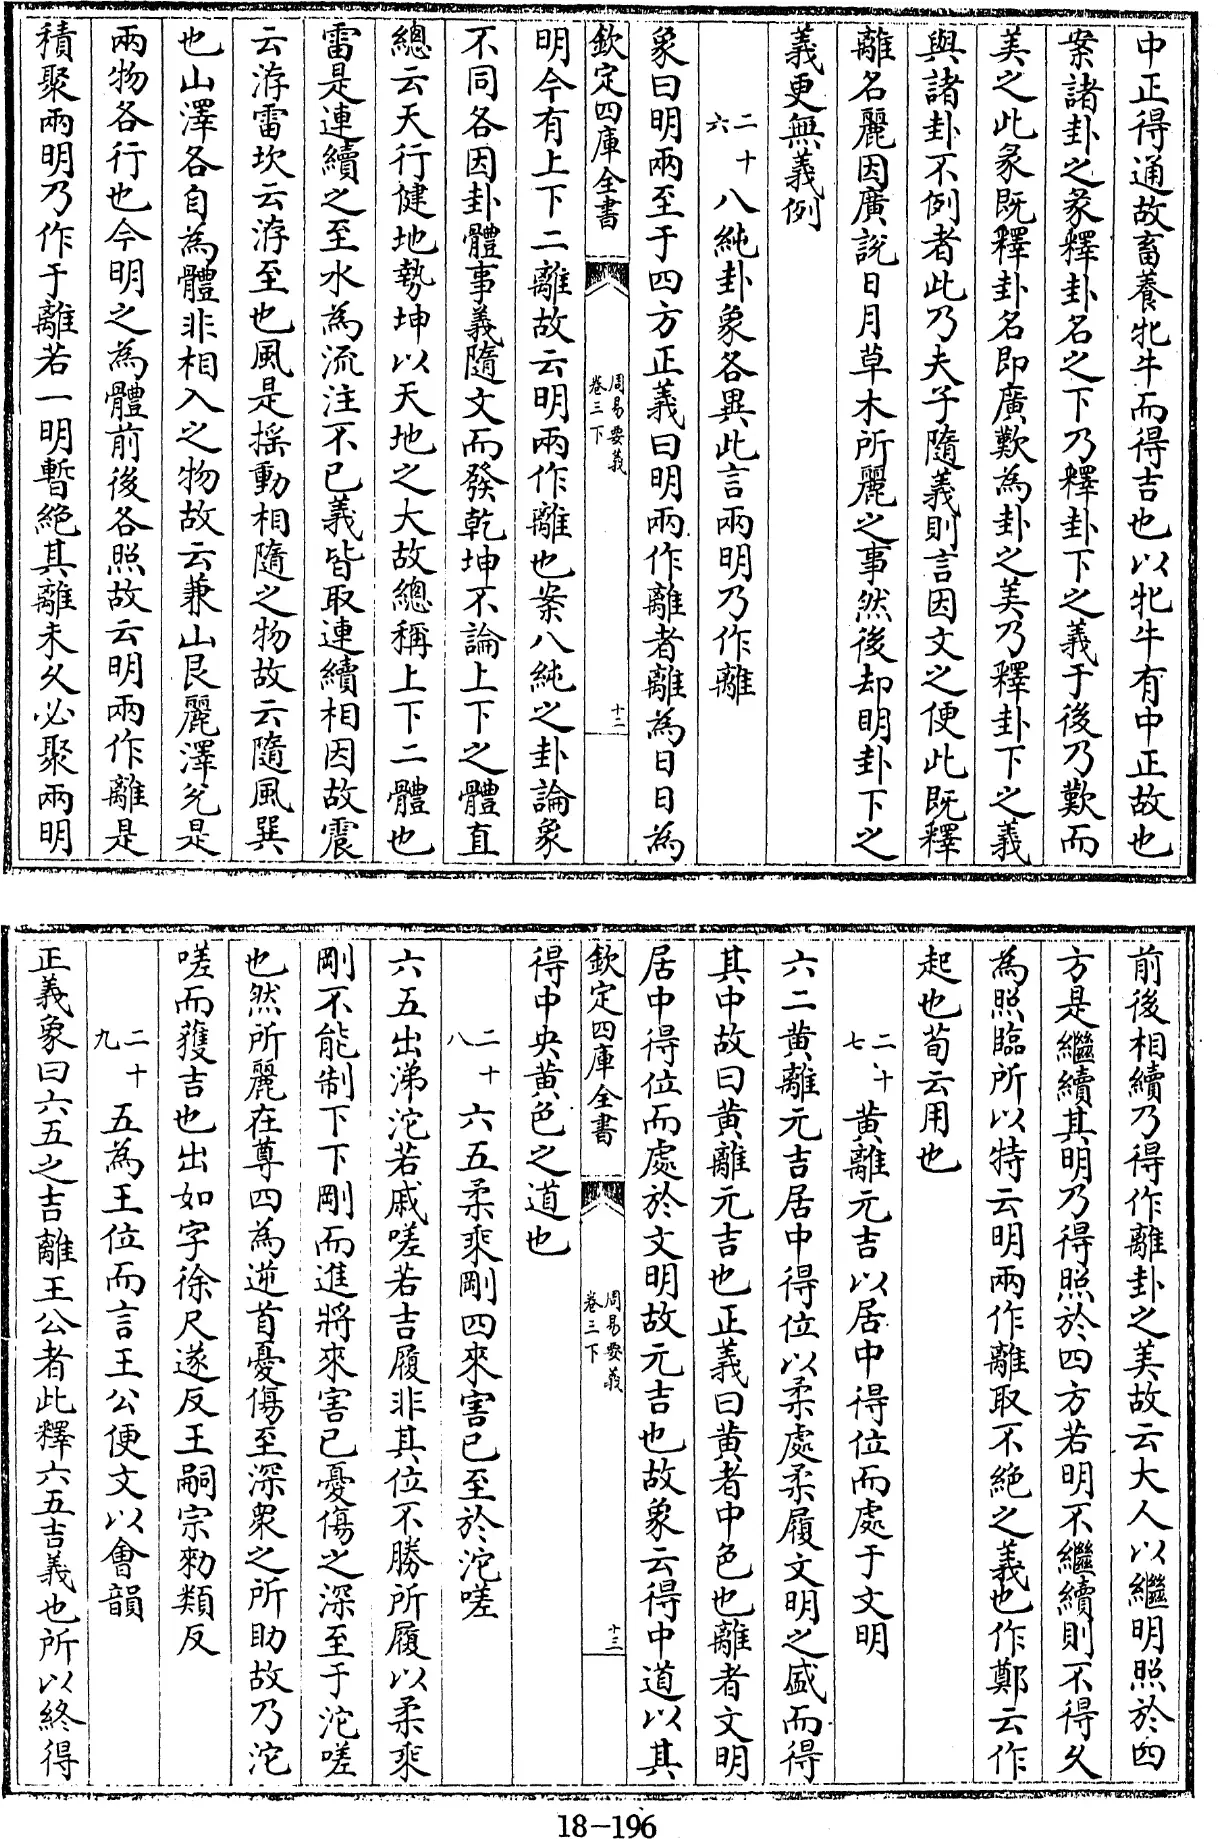 中正得通故畜養牝牛而得吉也以牝牛有中正故也
案諸卦之彖釋卦名之下乃釋卦下之義于後乃歎而
美之此彖既釋卦名即廣歎為卦之美乃釋卦下之義
與諸卦不例者此乃夫子隨義則言因文之便此既釋
離名麗因廣說日月草木所麗之事然後却明卦下之
義更無義例
二十六 八純卦象各異此言兩明乃作離
象曰明兩至于四方正義曰明兩作離者離為日日為
欽定四庫全書 周易要義 卷三下 十二
明今有上下二離故云明兩作離也案八純之卦論象
不同各因卦體事義隨文而發乾坤不論上下之體直
總云天行健地勢坤以天地之大故總稱上下二體也
雷是連續之至水為流注不已義皆取連續相因故震
云洊雷坎云洊至也風是搖動相隨之物故云隨風巽
也山澤各自為體非相入之物故云兼山艮麗澤兌是
兩物各行也今明之為體前後各照故云明兩作離是
積聚兩明乃作于離若一明暫絕其離未久必聚兩明
前後相續乃得作離卦之美故云大人以繼明照於四
方是繼續其明乃得照於四方若明不繼續則不得久
為照臨所以特云明兩作離取不絕之義也作鄭云作
起也荀云用也
二十七 黃離元吉以居中得位而處于文明
六二黃離元吉居中得位以柔處柔履文明之盛而得
其中故曰黃離元吉也正義曰黃者中色也離者文明
居中得位而處於文明故元吉也故象云得中道以其
欽定四庫全書 周易要義 卷三下 十三
得中央黃色之道也
二十八 六五柔乘剛四來害已至於沱嗟
六五出涕沱若戚嗟若吉履非其位不勝所履以柔乘
剛不能制下下剛而進將來害已憂傷之深至于沱嗟
也然所麗在尊四為逆首憂傷至深衆之所助故乃沱
嗟而獲吉也出如字徐尺遂反王嗣宗勑類反
二十九 五為王位而言王公便文以會韻
正義象曰六五之吉離王公者此釋六五吉義也所以終得
18-196